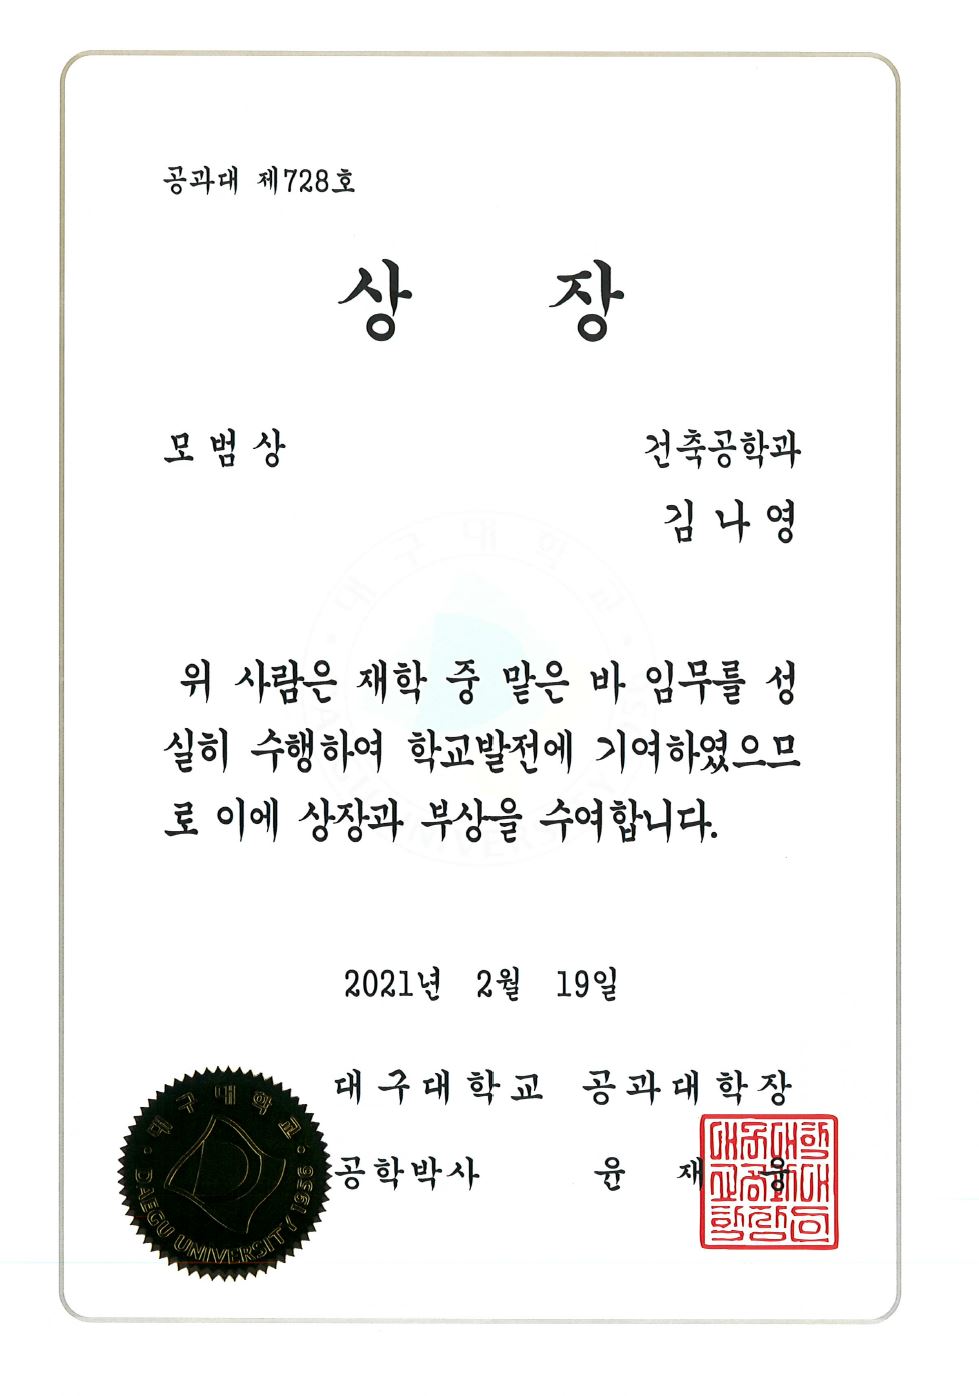 공과대 제728호
상 장
모범상
건축공학과
김나영
대구대학교
위 사람은 재학 중 맡은 바 임무를 성
실히 수행하여 학교발전에 기여하였으므
로 이에 상장과 부상을 수여합니다.
2021년 2월 19일
대구대학교 공과대학장
공학박사 윤재웅
대구대학교
DAEGU UNIVERSITY 1956
대구대학
교공과대
학장